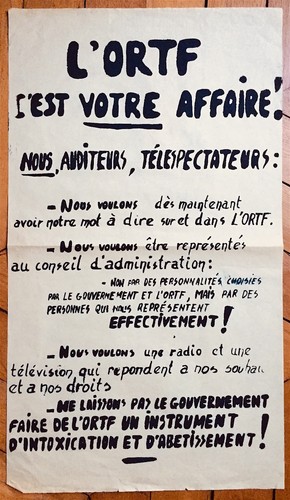 L'ORTF
C'EST VOTRE AFFAIRE!
NOUS, AUDITEURS, TÉLESPECTATEURS:
- NOUS VOULONS dès maintenant
avoir notre mot à dire sur et dans L'ORTF.
- NOUS VOULONS être représentés
au conseil d'administration:
- NON PAR DES PERSONNALITÉS CHOISIES
PAR LE GOUVERNEMENT ET L'ORTF, MAIS PAR DES
PERSONNES QUI NOUS REPRÉSENTENT
EFFECTIVEMENT!
- NOUS VOULONS une radio et une
télévision qui répondent a nos souhai
et a nos droits
- NE LAISSONS PAS LE GOUVERNEMENT
FAIRE DE L'ORTF UN INSTRUMENT
D'INTOXICATION ET D'ABETISSEMENT!